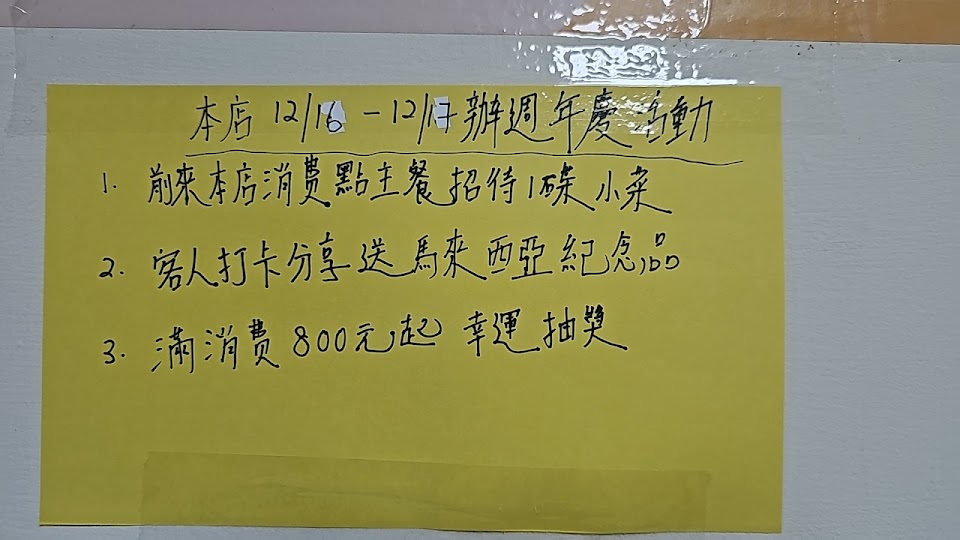 本店 12/16 - 12/17 辦週年慶活動
1. 前來本店消費點主餐招待1碟小菜
2. 客人打卡分享送馬來西亞紀念品
3. 滿消費800元起 幸運抽獎